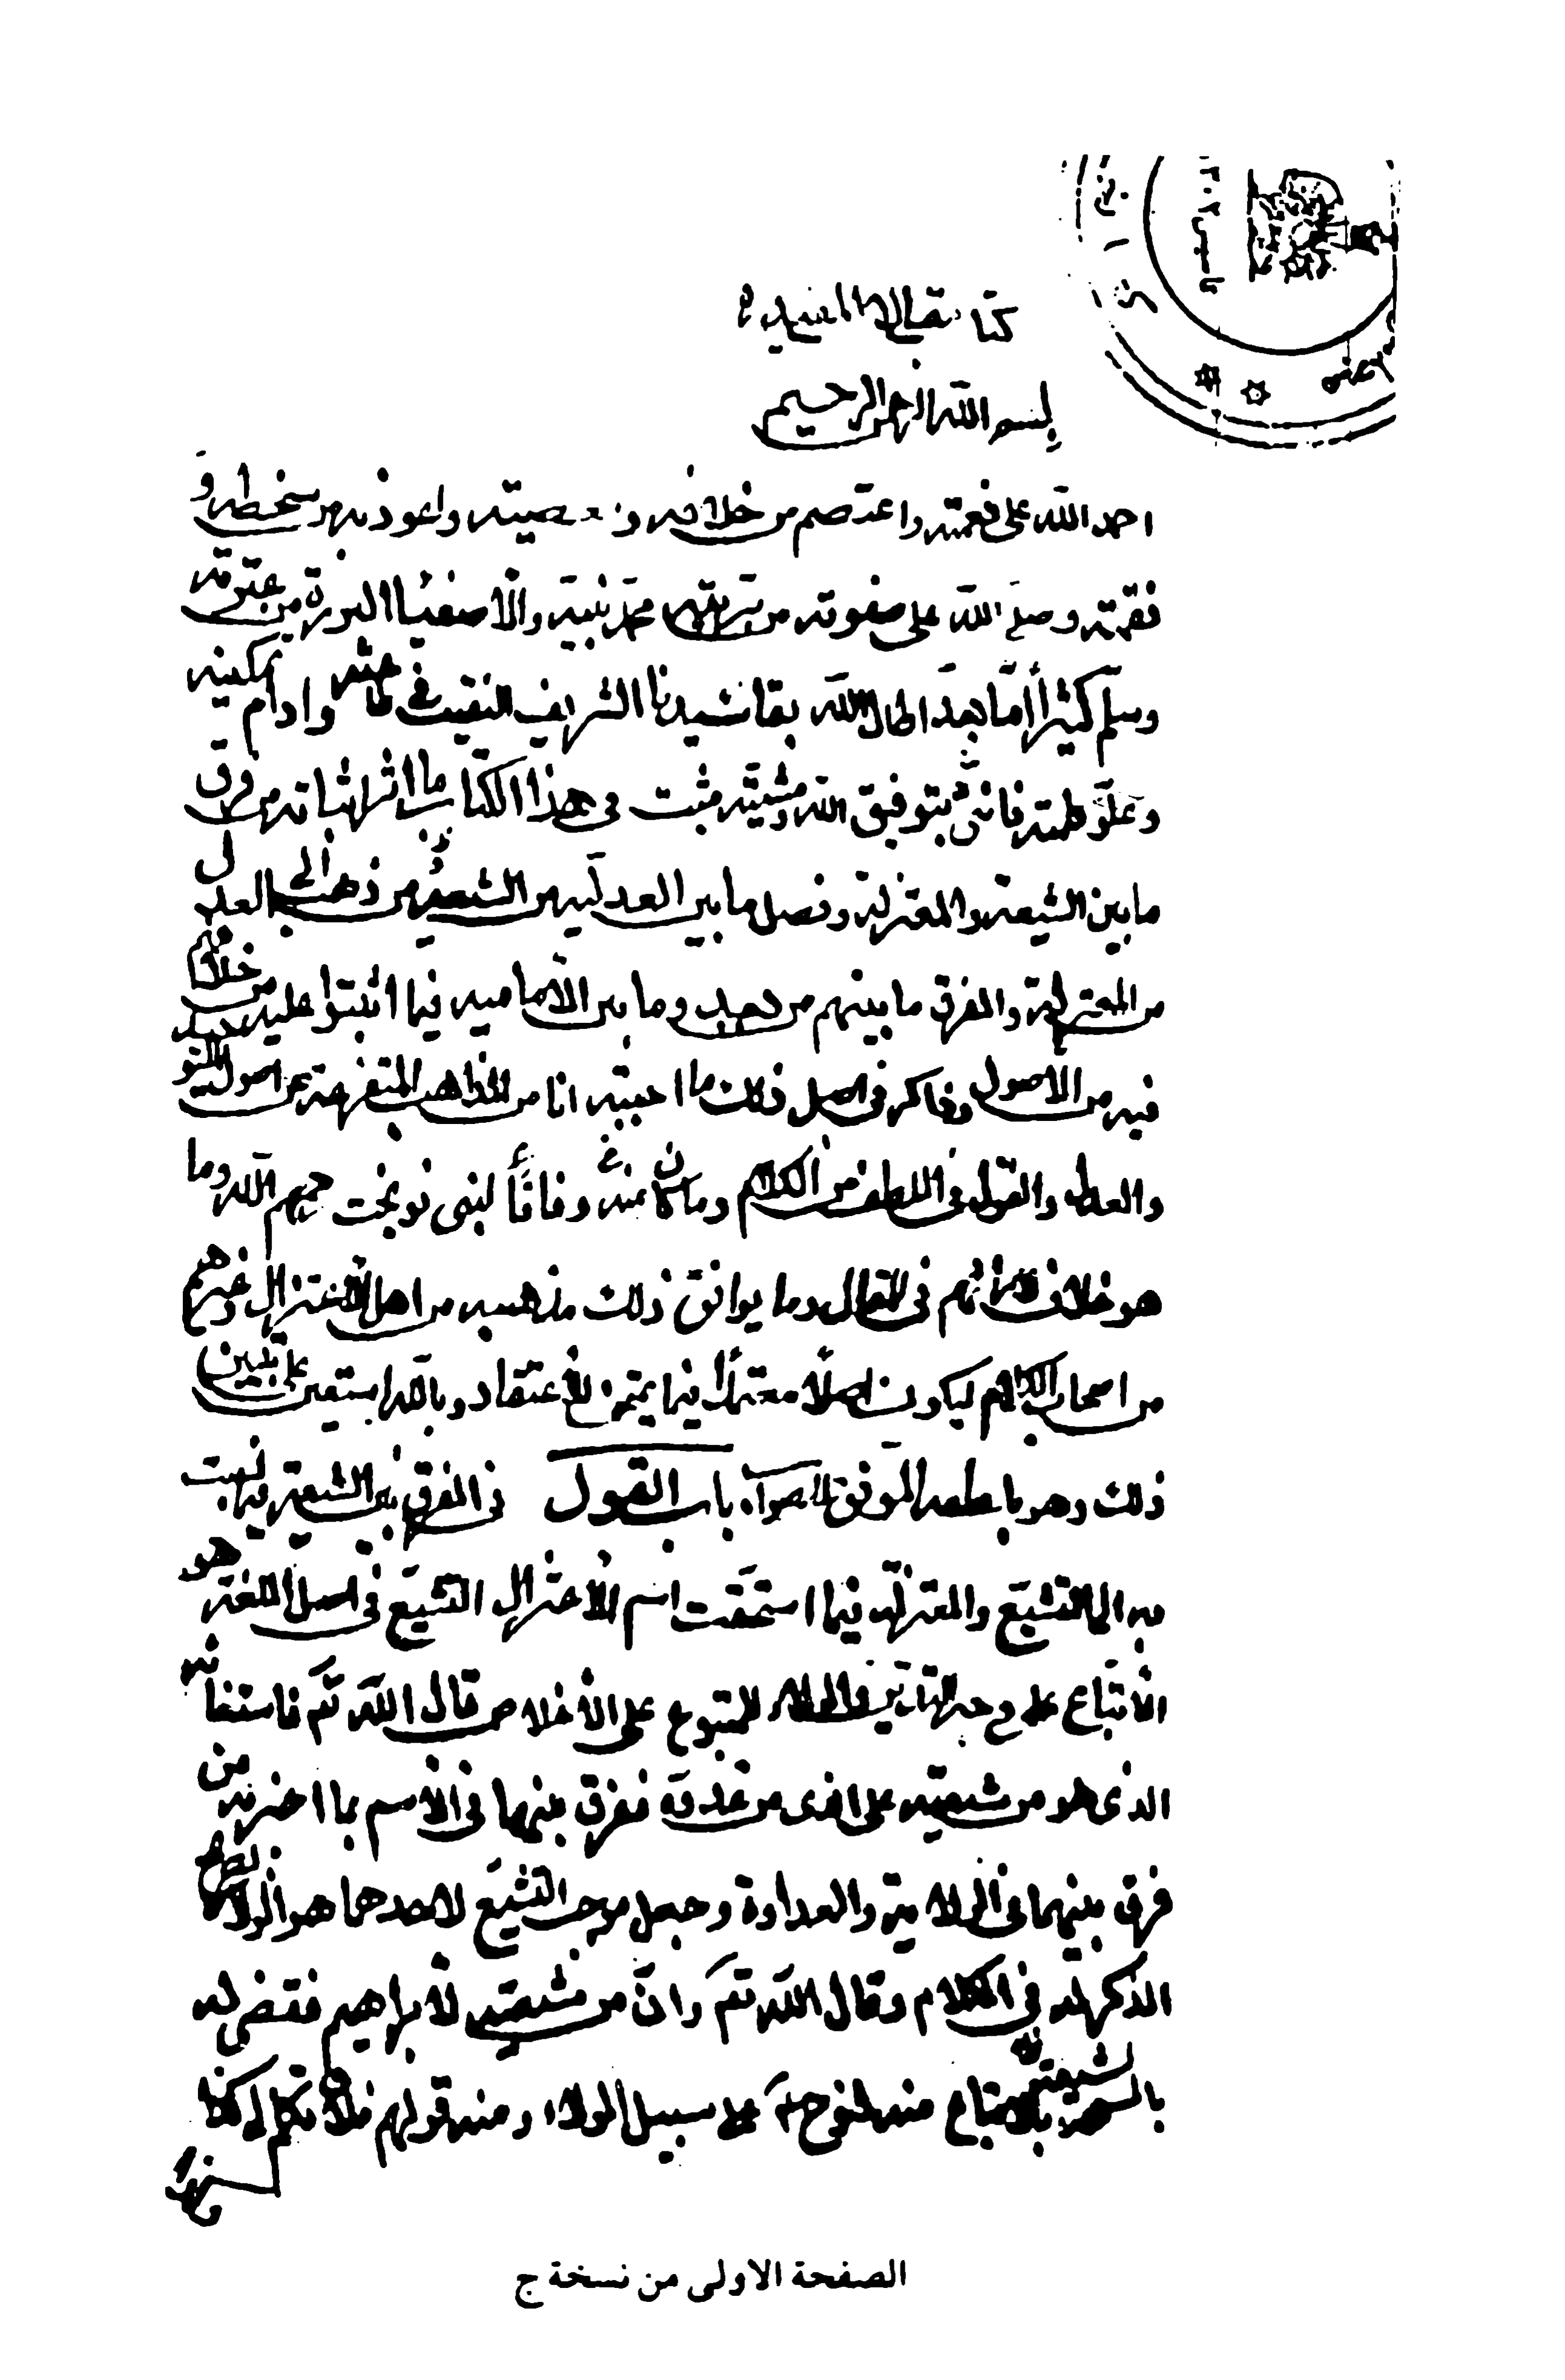 كتاب مقالات المفيد ره
بسم الله الرحمن الرحيم
احمد الله على نعمته واعتصم من خلافه و معصيته واعوذ به من سخطه و
نقمته وصلى الله على صفوته من بريته محمد نبيه والأصفيا البررة من عترته
وسلم كثيراً أما بعد اطال الله بقا سيدنا الشريف النقيب في عاجله وادام تمكينه
وعلو كلمته فانني بتوفيق الله ومشيته مثبت في هذا الكتاب ما اثر اثباته من فرق
ما بين الشيعة والمعتزلة وفصل ما بين العدليه من الشيعة ومن ذهب الى العدل
من المعتزلة والفرق ما بينهم من بعد وما بين الأماميه فيما اتفقوا عليه من خلافهم
فيه من الاصول وذاكر في اصل ذلك ما اجتبيته انا من المذاهب المتفرعة عن اصول التوحيد
والعدل والقول في اللطيف من الكلام وما كان منه وفاقاً لبني نوبخت رحمهم الله وما
هو خلاف لارائهم في المقال وما يوافق ذلك مذهبه من اهل الاعتزال وغيرهم
من اصحاب الكلام ليكون اصلاً معتمداً فيما يمتحن للأعتقاد وبالله استعين على تبيين
ذلك وهو بلطفه الموفق للصواب باب القول في الفرق بين الشيعة فيما نسبت
به الى التشيع والمعتزلة فيما استحقت اسم الأعتزال التشيع في اصل اللغة هو
الأتباع على وجه التدين والولاء للمتبوع على الأخلاص قال الله تع فاستغاثه
الذي هو من شيعته على الذي من عدوه ففرق بينهما في الأسم بما اخبر به من
فرق بينهما في الولاية والعداوة وجعل موجب التشيع لاحدهما هو الولاء
الذكر له في الكلام وقال الله تع وان من شيعته لأبراهيم فقضى له
بالسمة بالاتباع منه لنوح ع على سبيل الولاء ومنه قولهم فلان تكلم في كذا
الصفحة الاولى من نسخة ج